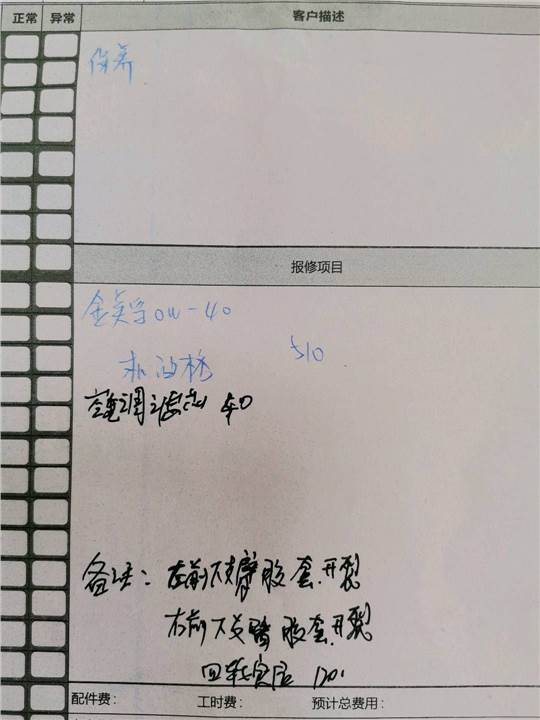 正常 异常 客户描述
保养
报修项目
金美孚0W-40
机油格 510
空调滤芯 40
备注：左前下支臂胶套开裂
右前下支臂胶套开裂
配件费： 工时费： 预计总费用：